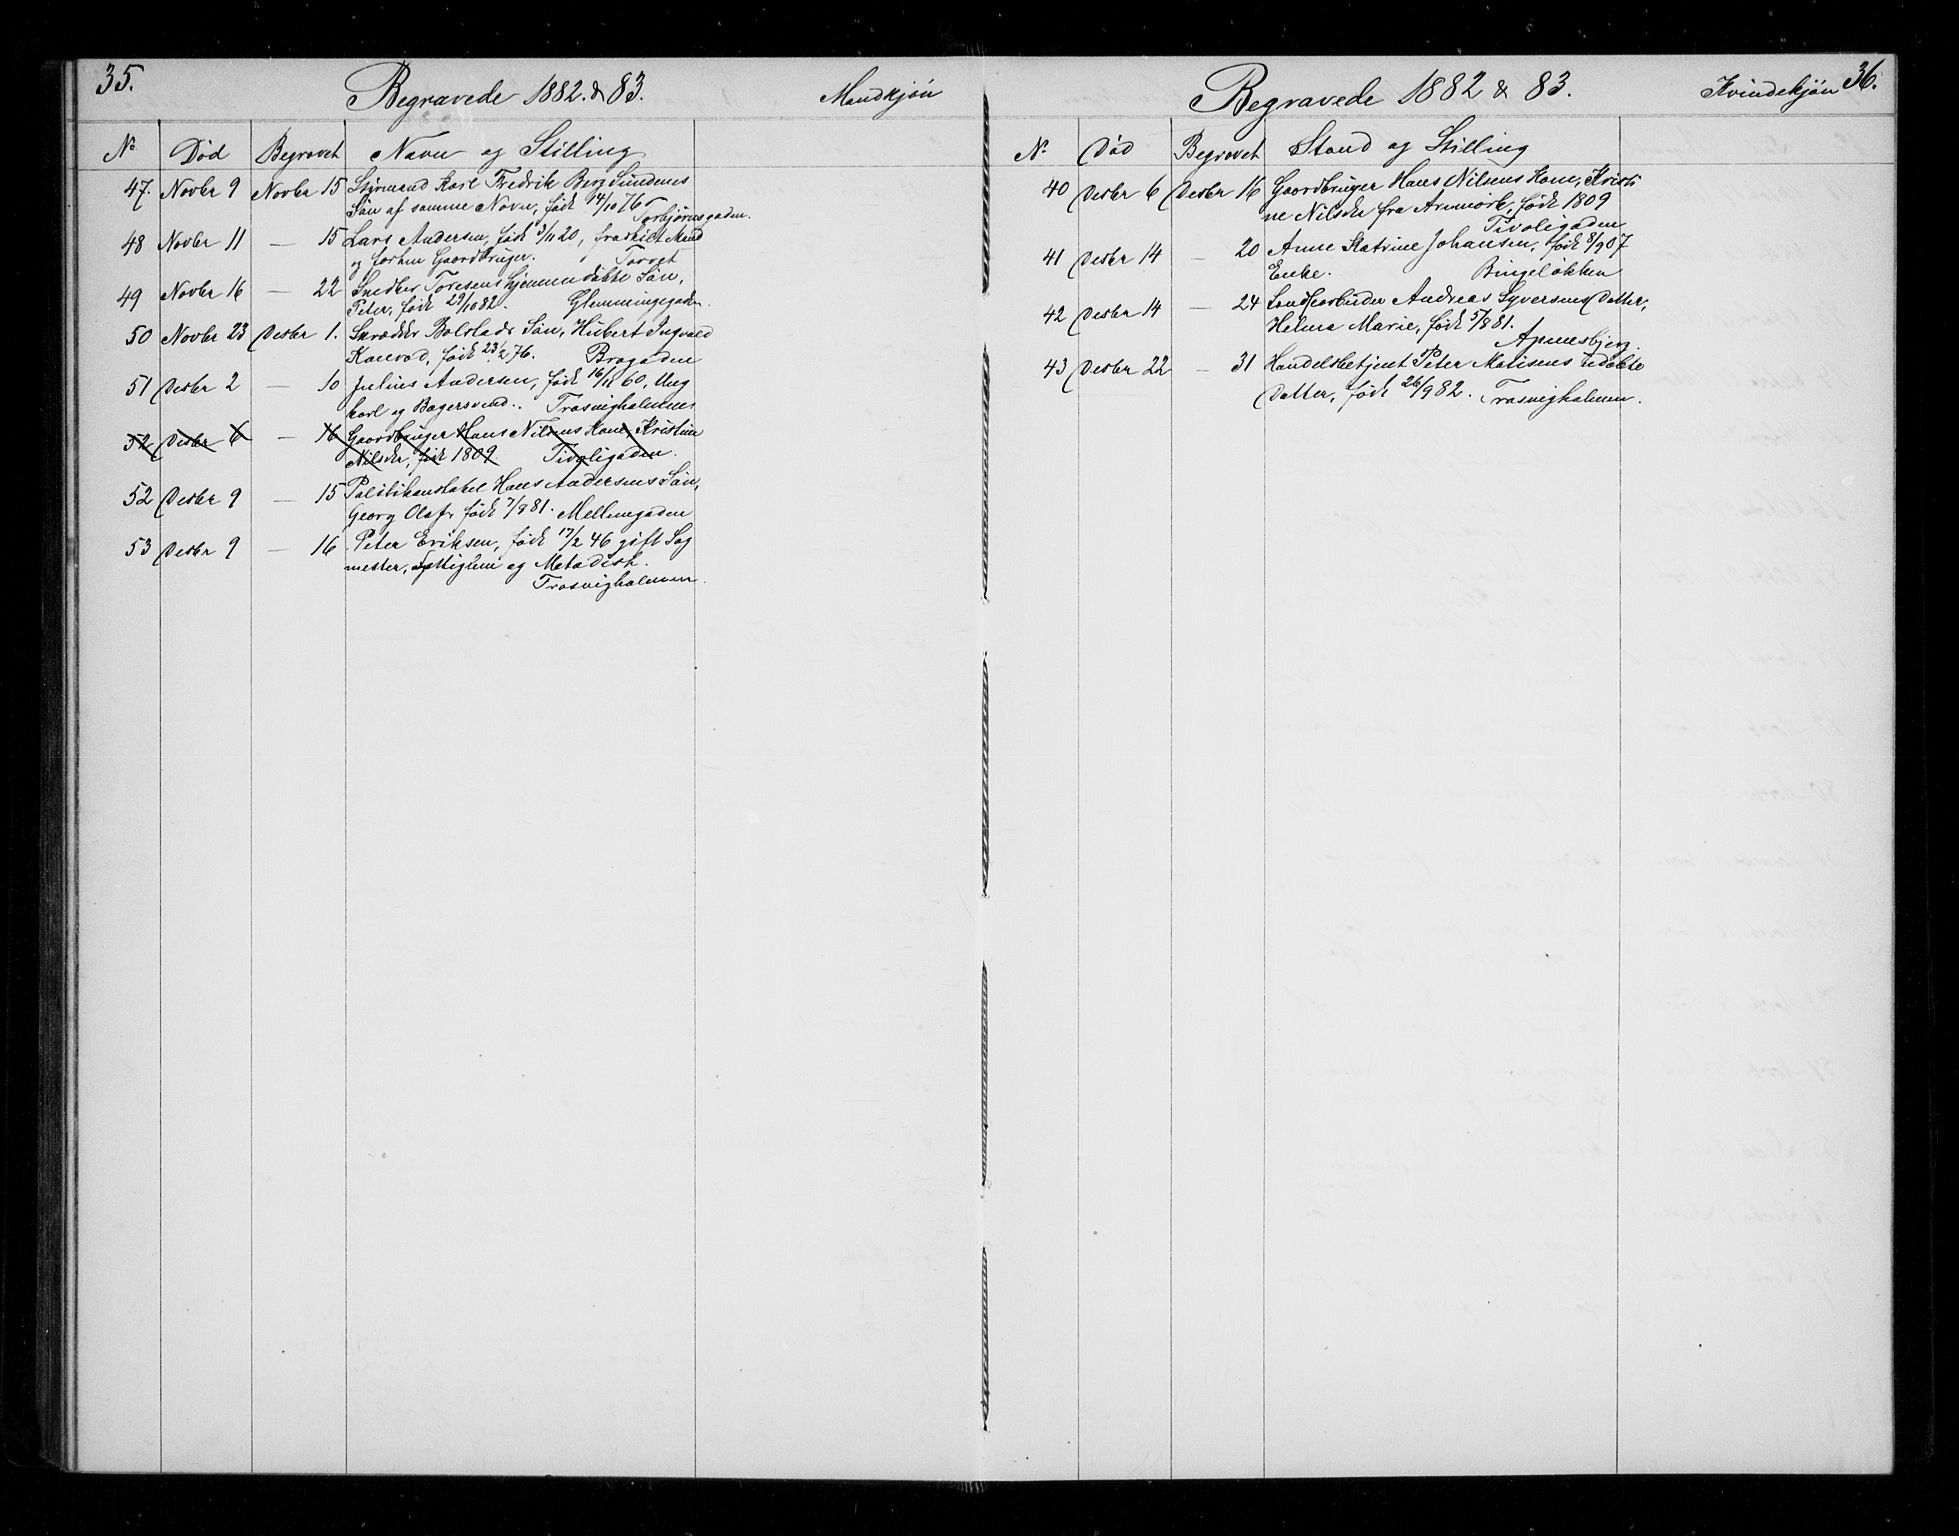 35.
Begravede 1882 & 83. Mandkjøn
No Død Begravet Navn og Stilling
47. Novbr 9 Novbr 15 Styrmand Karl Fredrik Berg Sundenes
Søn af samme Navn, født 14/10 76 Torbjørnsgaden.
48 Novbr 11 — 15 Lars Andersen, født 3/11 20, fraskilt Mand
og forhen Gaardbruger. Torvet
49 Novbr 16 — 22 Snedker Toresens hjemmedøbte Søn,
Peter, født 29/10 82. Glemmingegaden.
50 Novbr 23 Desbr 1. Skrædder Bolstads Søn, Hubert Ingvald
Konrad, født 23/2 76. Brogaden
51 Desbr 2 — 10 Julius Andersen, født 16/11 60, Ung
karl og Bagersvend. Trosvigholmen
52 Desbr 6 — 16 Gaardbruger Hans Nilsens Kone, Kristine
Nilsdr, født 1809. Tivoligaden.
52 Desbr 9 — 15 Politikonstabel Hans Andersens Søn,
Georg Olaf, født 7/9 81. Mellemgaden
53 Desbr 9 — 16 Peter Eriksen, født 17/2 46 gift Sag
mester, Fattiglem og Metodist.
Trosvigholmen.
36.
Begravede 1882 & 83. Kvindekjøn
No Død Begravet Stand og Stilling
40 Desbr 6 Desbr 16 Gaardbruger Hans Nilsens Kone, Kristi
ne Nilsdr fra Aremark, født 1809
Tivoligaden
41 Desbr 14 — 20 Anne Katrine Johansen, født 8/9 07
Enke. Bingeløkken
42 Desbr 14 — 24 Andreas Syversens Datter,
Helma Marie, født 5/8 81.
Apenesbjerg.
43 Desbr 22 — 31 Handelsbetjent Peter Matisens udøbte
Datter, født 26/9 82. Trosvigholmen.